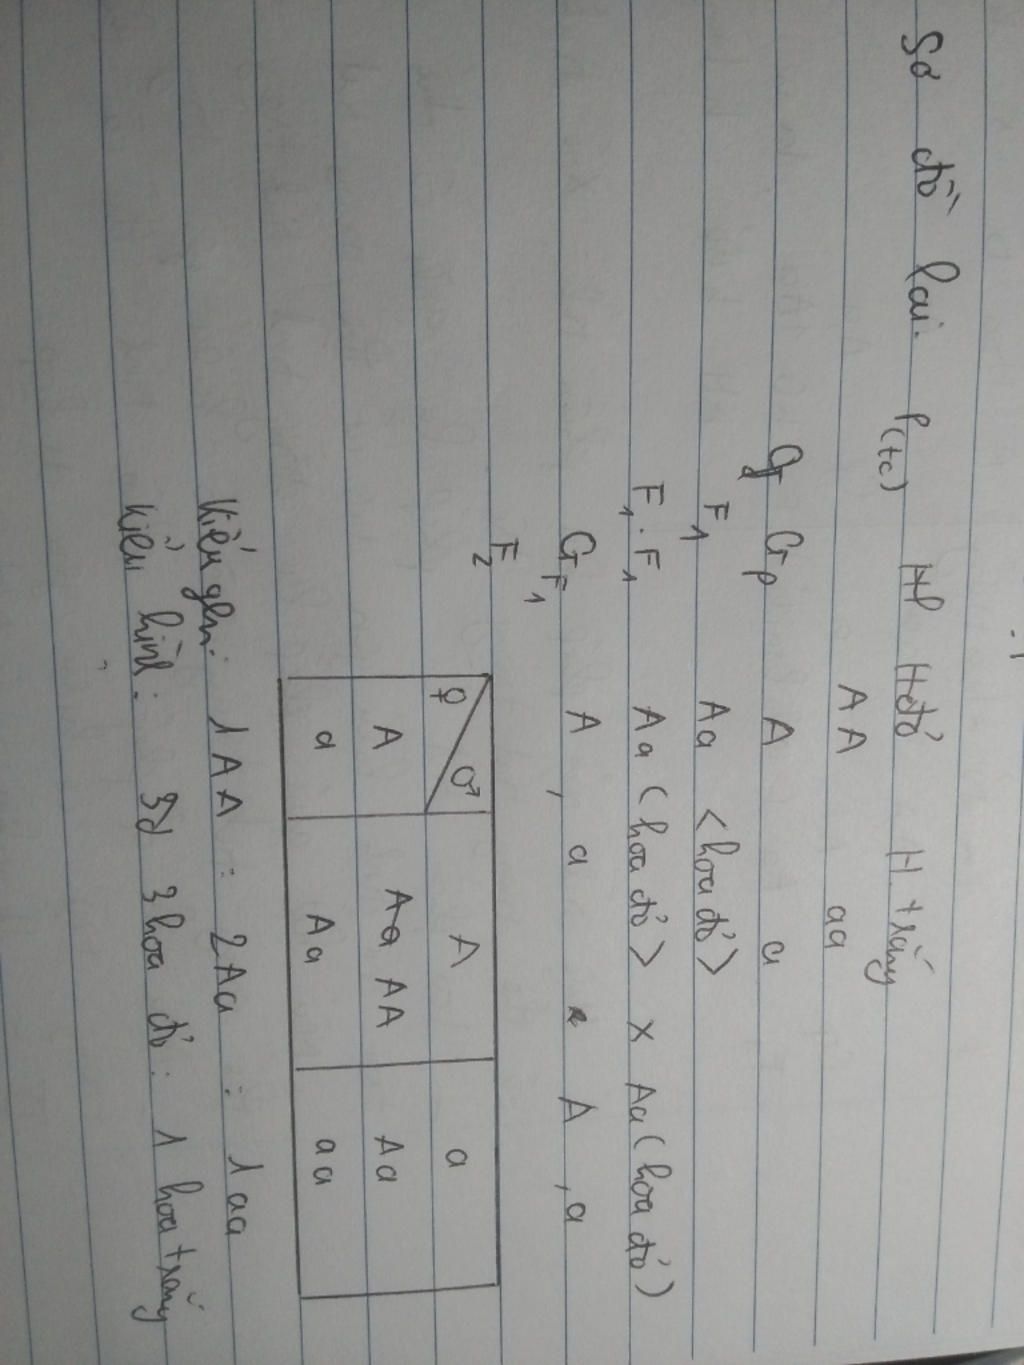 Sơ đồ lai. P(tc) Hđỏ H.trắng
AA aa
Gp A a
F1 Aa <hoa đỏ>
F1.F1 Aa (hoa đỏ> x Aa (hoa đỏ)
GF1 A , a A , a
F2
♀ ♂ A a
A AA Aa
a Aa aa
Kiểu gen: 1AA : 2Aa : 1aa
Kiểu hình: 3 hoa đỏ : 1 hoa trắng